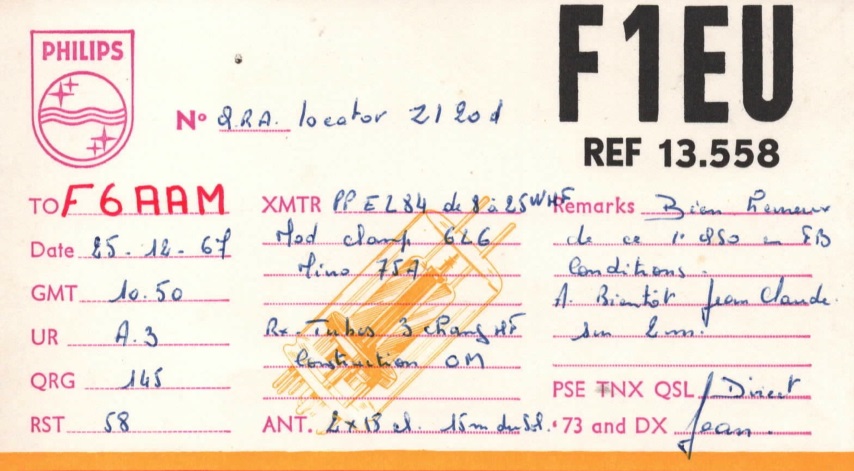 PHILIPS
F1EU
REF 13.558
N° Q.R.A. locator ZI 20d
TO F6AAM
Date 25-12-67
GMT 10.50
UR A.3
QRG 145
RST 58
XMTR PP EL84 de 8 à 25W HF
Mod clamp 6L6
Mino 75A
Rx. Tubes 3 chang HF
Construction OM
ANT. 2x13 el. 15m du sol.
Remarks Bien
de ce 1° QSO en FB
Conditions.
A Bientôt Jean Claude.
sur 2m.
PSE TNX QSL Direct
73 and DX Jean.